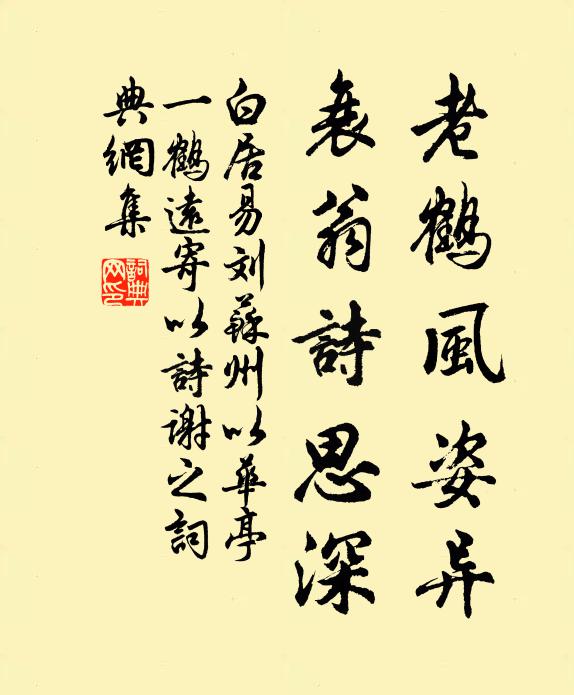 老鹤風姿异
衰翁詩思深
白居易刘蘇州以華亭
一鶴遠寄以詩谢之詞
典網集
詞典
网印